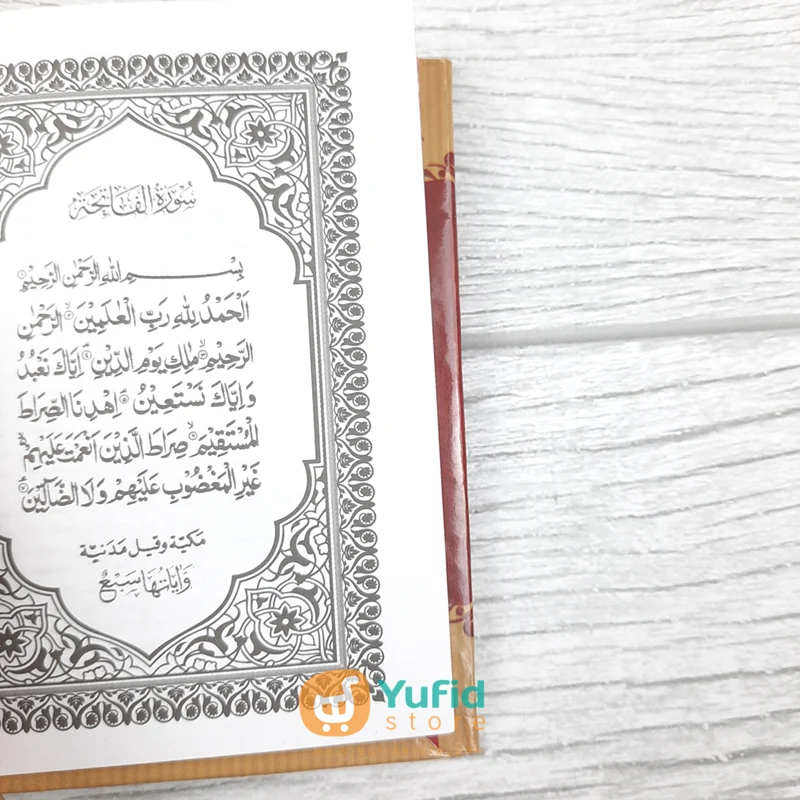 سُوْرَةُ الْفَاتِحَةِ
بِسْمِ اللهِ الرَّحْمٰنِ الرَّحِيْمِ ۝١
اَلْحَمْدُ لِلّٰهِ رَبِّ الْعٰلَمِيْنَ ۝٢ الرَّحْمٰنِ
الرَّحِيْمِ ۝٣ مٰلِكِ يَوْمِ الدِّيْنِ ۝٤ اِيَّاكَ نَعْبُدُ
وَاِيَّاكَ نَسْتَعِيْنُ ۝٥ اِهْدِنَا الصِّرَاطَ
الْمُسْتَقِيْمَ ۝٦ صِرَاطَ الَّذِيْنَ اَنْعَمْتَ عَلَيْهِمْ
غَيْرِ الْمَغْضُوْبِ عَلَيْهِمْ وَلَا الضَّآلِّيْنَ ۝٧
مَكِّيَّة وَقِيْلَ مَدَنِيَّة
وَاٰيَاتُهَا سَبْعٌ
Yufid
store